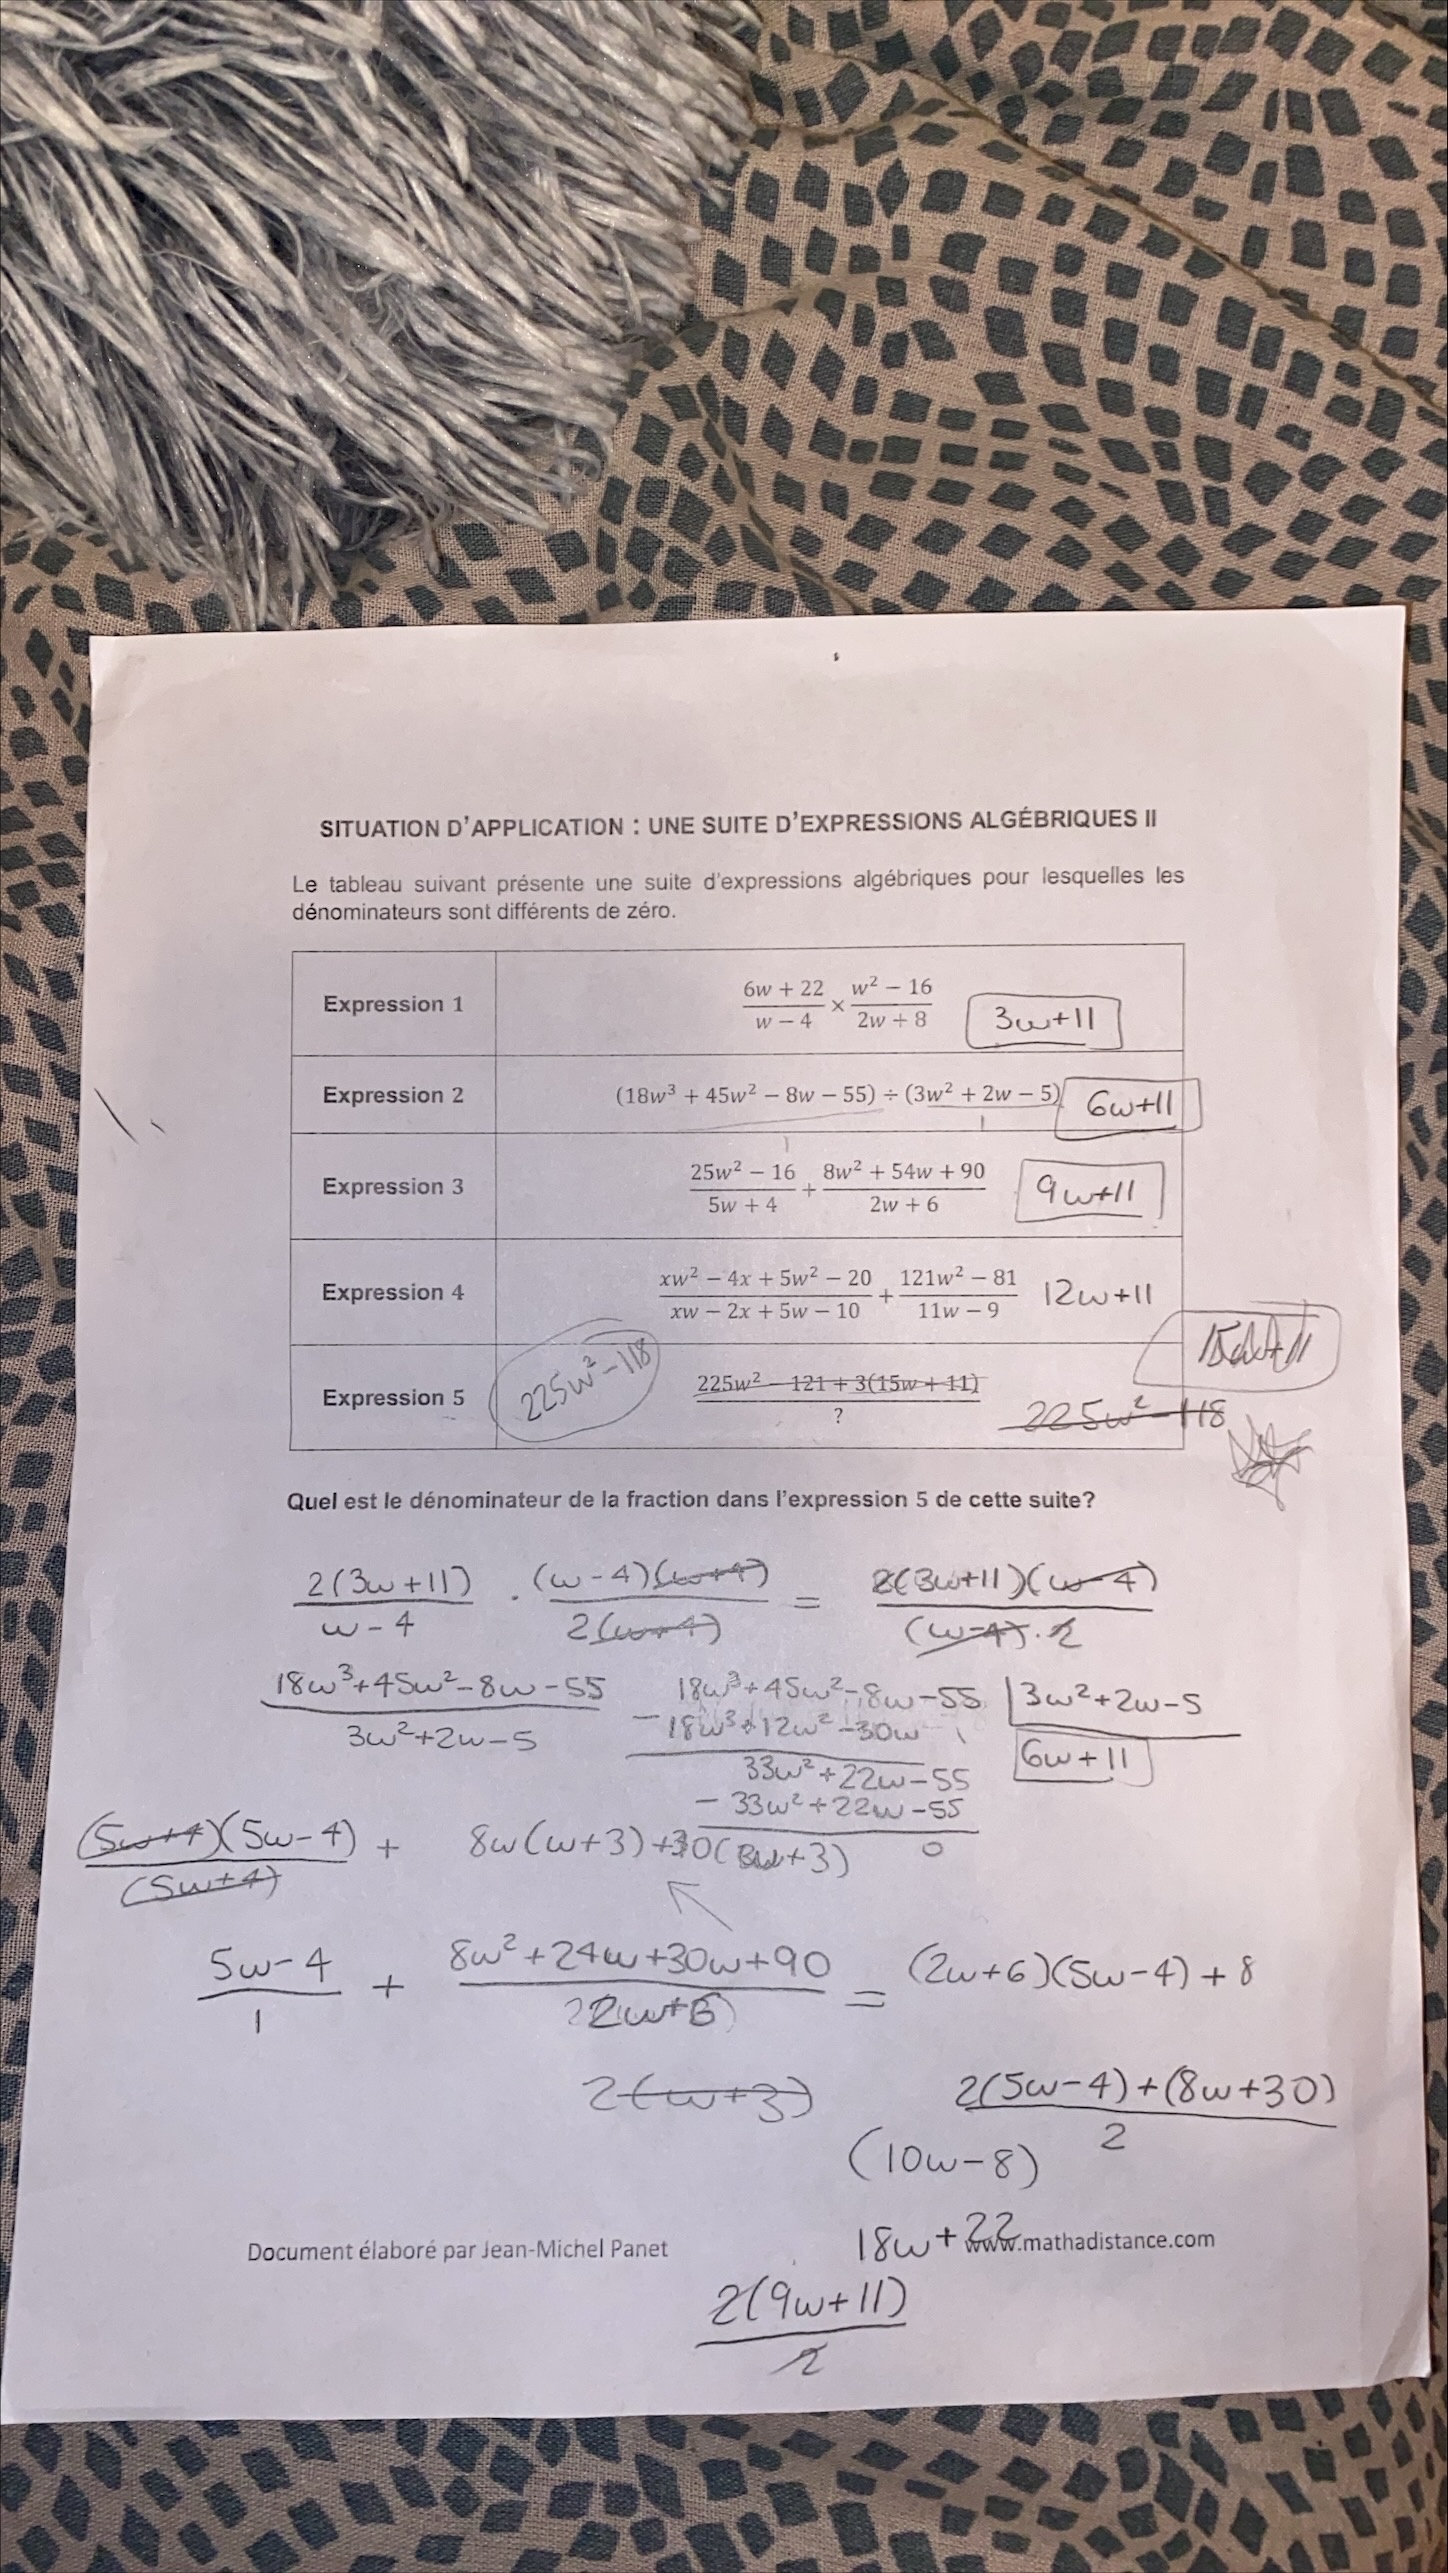 SITUATION D'APPLICATION : UNE SUITE D'EXPRESSIONS ALGÉBRIQUES II
Le tableau suivant présente une suite d'expressions algébriques pour lesquelles les
dénominateurs sont différents de zéro.
Expression 1 (6w + 22)/(w − 4) × (w² − 16)/(2w + 8) 3w+11
Expression 2 (18w³ + 45w² − 8w − 55) ÷ (3w² + 2w − 5) 6w+11
Expression 3 (25w² − 16)/(5w + 4) + (8w² + 54w + 90)/(2w + 6) 9w+11
Expression 4 (xw² − 4x + 5w² − 20)/(xw − 2x + 5w − 10) + (121w² − 81)/(11w − 9) 12w+11
Expression 5 225w²-118 (225w² − 121 + 3(15w + 11))/? 225w²-118
Quel est le dénominateur de la fraction dans l'expression 5 de cette suite?
2(3w+11)/(w-4) · (w-4)(w+4)/2(w+4) = 2(3w+11)(w-4)/(w-4)·2
(18w³+45w²-8w-55)/(3w²+2w-5)
18w³+45w²-8w-55 | 3w²+2w-5
- 18w³+12w²-30w
6w+11
33w²+22w-55
- 33w²+22w-55
0
(5w+4)(5w-4)/(5w+4) + 8w(w+3)+30(w+3)
(5w-4)/1 + (8w²+24w+30w+90)/(2w+6) = (2w+6)(5w-4)+8
2(w+3)
(2(5w-4)+(8w+30))/2
(10w-8)
18w+22
Document élaboré par Jean-Michel Panet www.mathadistance.com
2(9w+11)/2